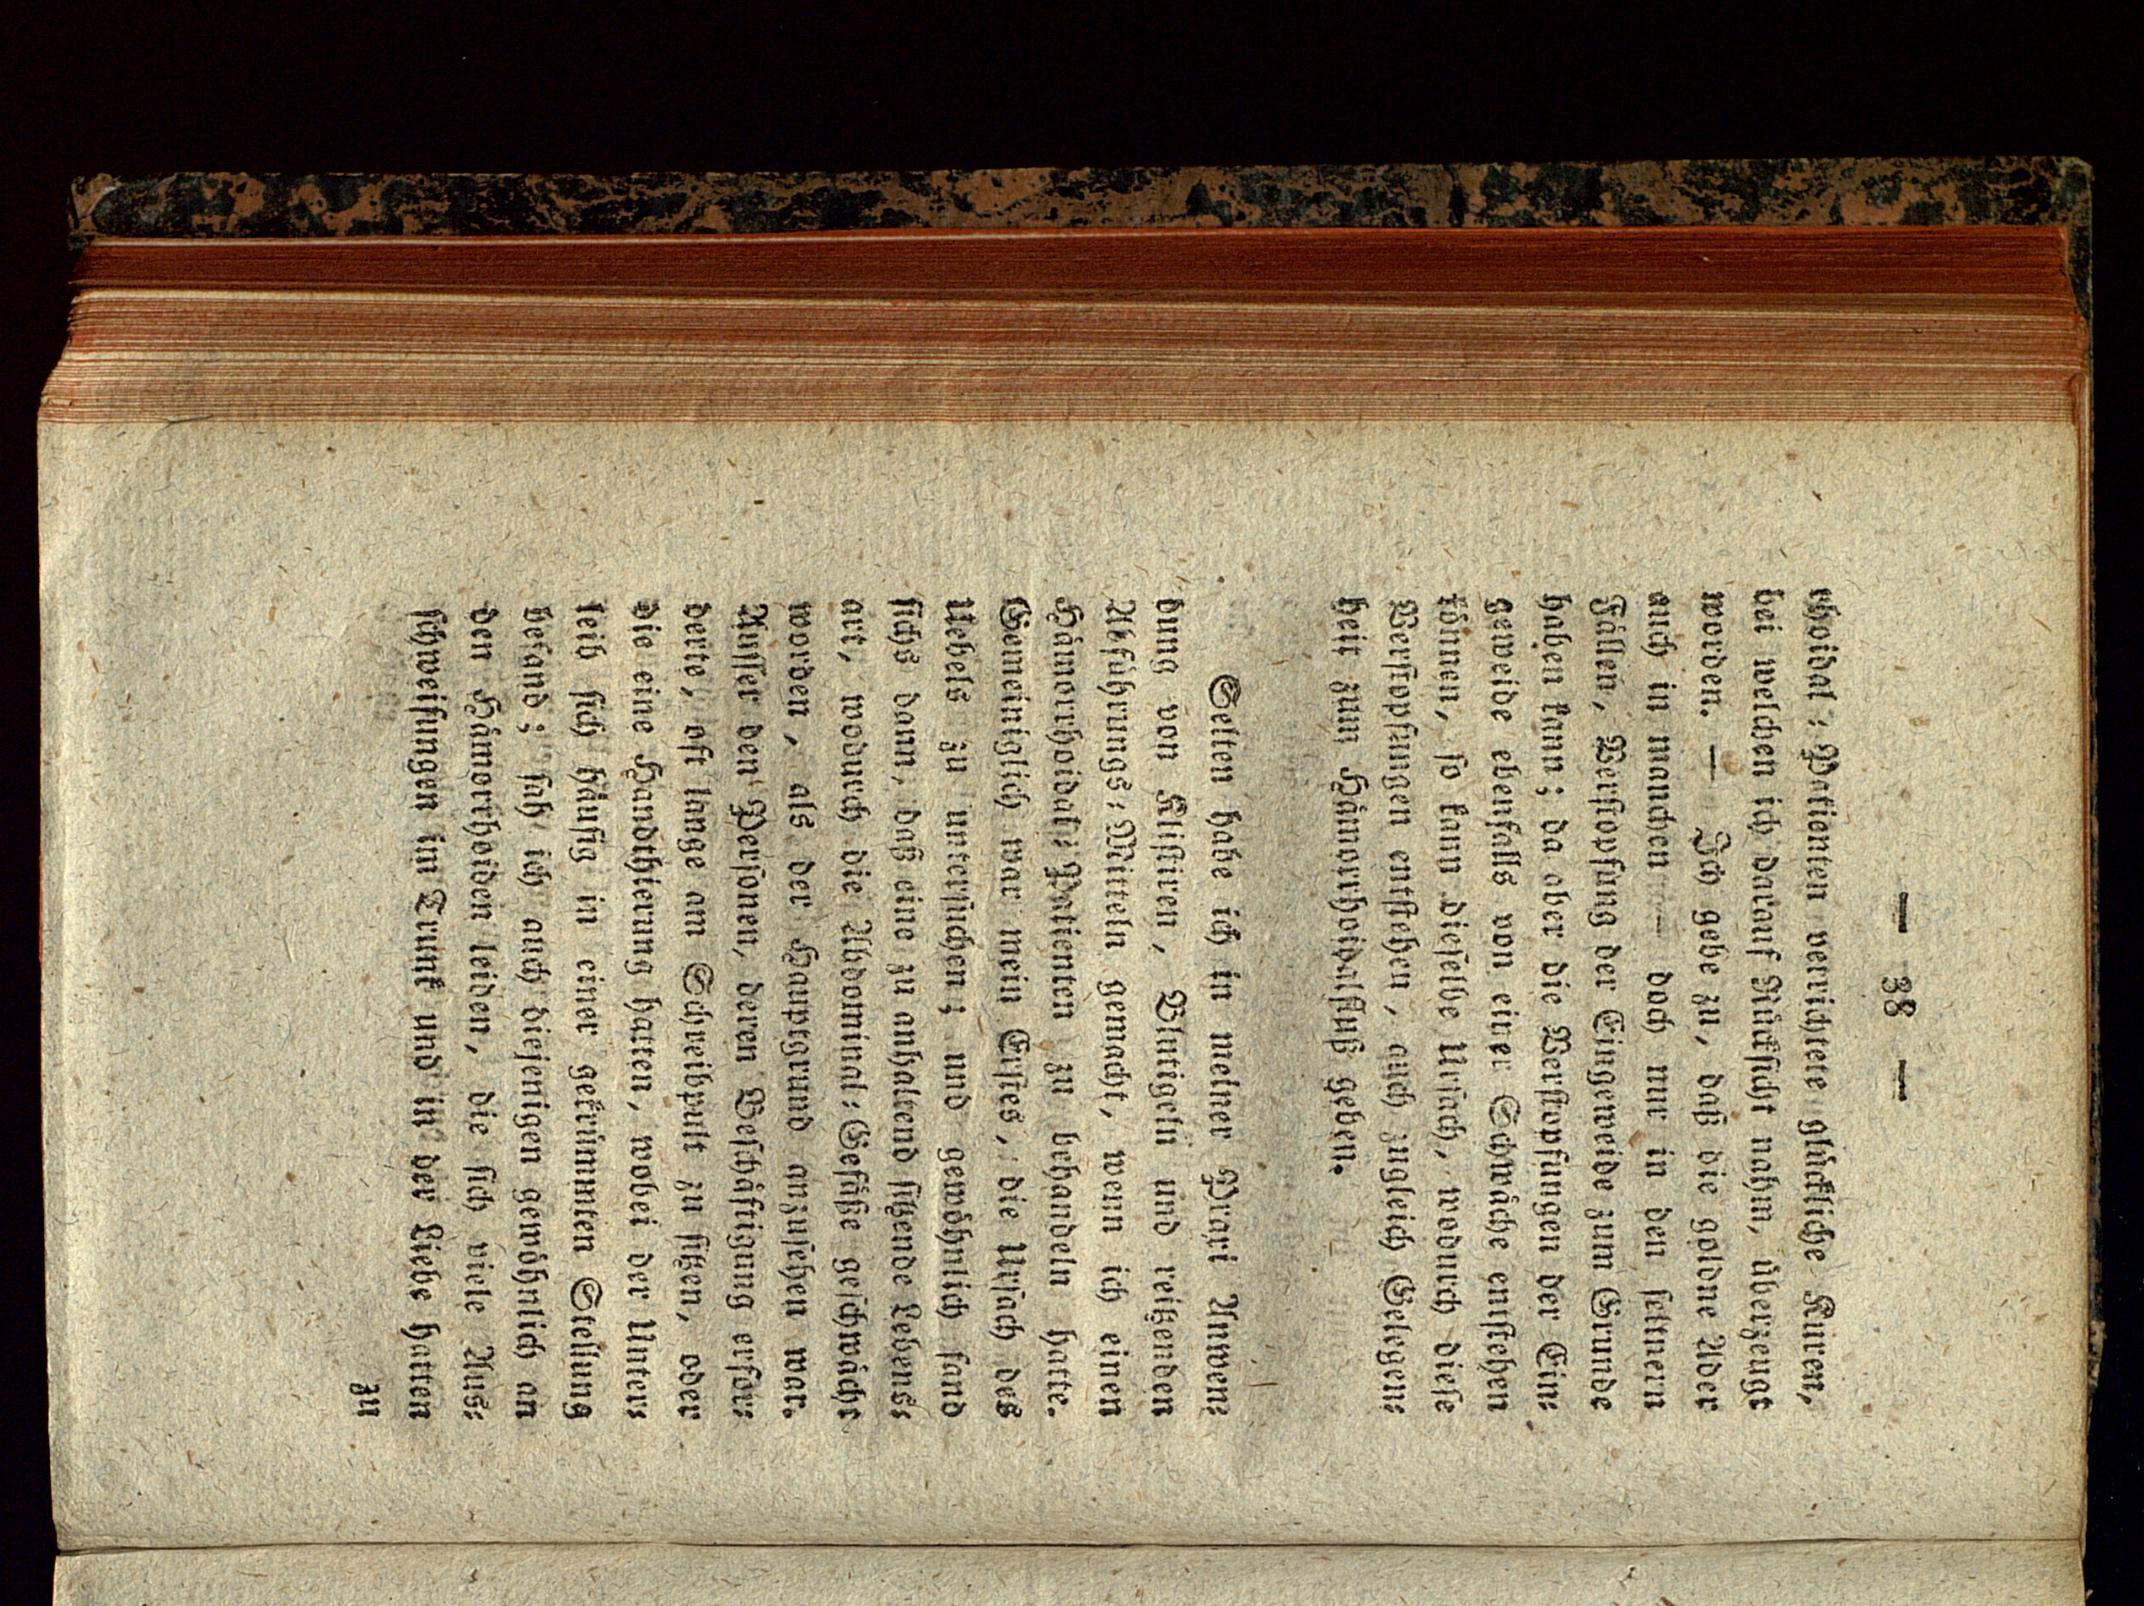 — 38 —
rhoidal⸗Patienten verrichtete glückliche Kuren,
bei welchen ich darauf Rücksicht nahm, überzeugt
worden. — Ich gebe zu, daß die goldne Ader
auch in manchen — doch nur in den seltnern
Fällen, Verstopfung der Eingeweide zum Grunde
haben kann; da aber die Verstopfungen der Ein⸗
geweide ebenfalls von einer Schwäche entstehen
können, so kann dieselbe Ursach, wodurch diese
Verstopfungen entstehen, auch zugleich Gelegen⸗
heit zum Hämorrhoidalfluß geben.
Selten habe ich in meiner Praxi Anwen⸗
dung von Klistiren, Blutigeln und reitzenden
Abführungs⸗Mitteln gemacht, wenn ich einen
Hämorrhoidal⸗Patienten zu behandeln hatte.
Gemeiniglich war mein Erstes, die Ursach des
Uebels zu untersuchen; und gewöhnlich fand
sichs dann, daß eine zu anhaltend sitzende Lebens⸗
art, wodurch die Abdominal⸗Gefäße geschwächt
worden, als der Hauptgrund anzusehen war.
Ausser den Personen, deren Beschäftigung erfor⸗
derte, oft lange am Schreibpult zu sitzen, oder
die eine Handthierung hatten, wobei der Unter⸗
leib sich häufig in einer gekrümmten Stellung
befand; sah ich auch diejenigen gewöhnlich an
den Hämorrhoiden leiden, die sich viele Aus⸗
schweifungen im Trunk und in der Liebe hatten
zu